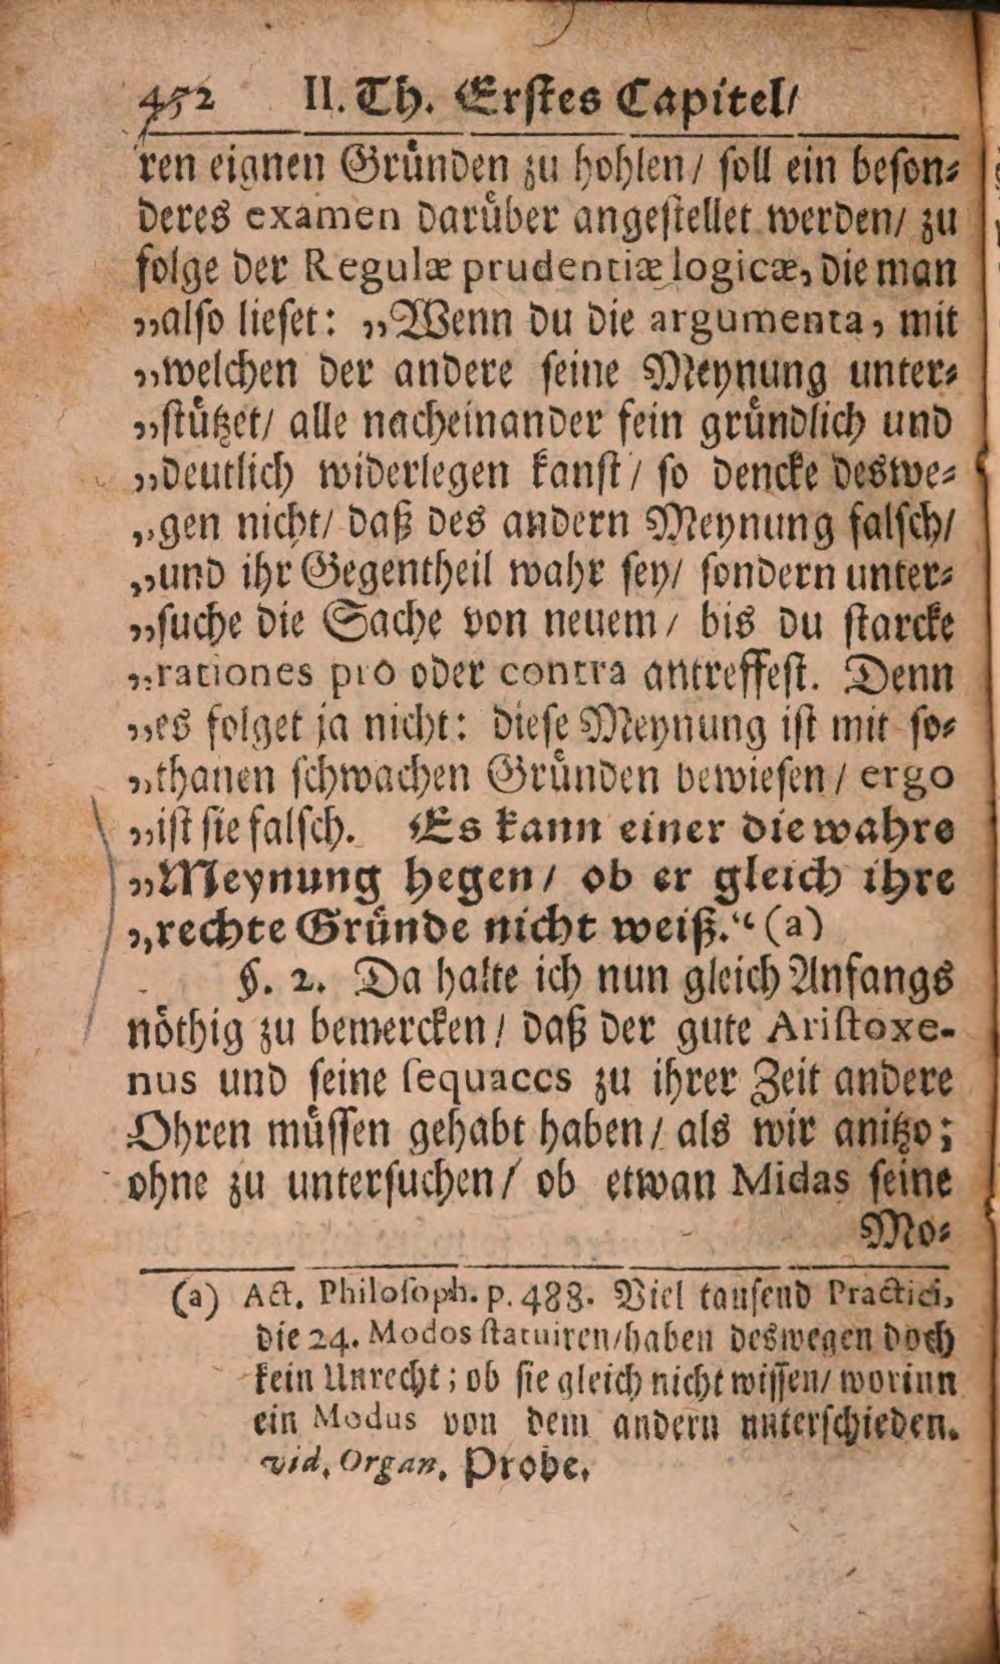 452 II. Th. Erſtes Capitel/
ren eignen Gruͤnden zu hohlen/ ſoll ein beſon⸗
deres examen daruͤber angeſtellet werden/ zu
folge der Regulæ prudentiæ logicæ, die man
„alſo lieſet: „Wenn du die argumenta, mit
„welchen der andere ſeine Meynung unter⸗
„ſtuͤtzet/ alle nacheinander fein gruͤndlich und
„deutlich widerlegen kanſt/ ſo dencke deswe⸗
„gen nicht/ daß des andern Meynung falſch/
„und ihr Gegentheil wahr ſey/ ſondern unter⸗
„ſuche die Sache von neuem/ bis du ſtarcke
„rationes pro oder contra antreffeſt. Denn
„es folget ja nicht: dieſe Meynung iſt mit ſo⸗
„thanen ſchwachen Gruͤnden bewieſen/ ergo
„iſt ſie falſch. Es kann einer die wahre
„Meynung hegen/ ob er gleich ihre
„rechte Gruͤnde nicht weiß.“ (a)
§. 2. Da halte ich nun gleich Anfangs
noͤthig zu bemercken/ daß der gute Ariſtoxe-
nus und ſeine ſequaces zu ihrer Zeit andere
Ohren muͤſſen gehabt haben/ als wir anitzo;
ohne zu unterſuchen/ ob etwan Midas ſeine
Mo⸗
(a) Act. Philoſoph. p. 488. Viel tauſend Practici,
die 24. Modos ſtatuiren/haben deswegen doch
kein Unrecht; ob ſie gleich nicht wiſſen/ worinn
ein Modus von dem andern unterſchieden.
vid. Organ. Probe.